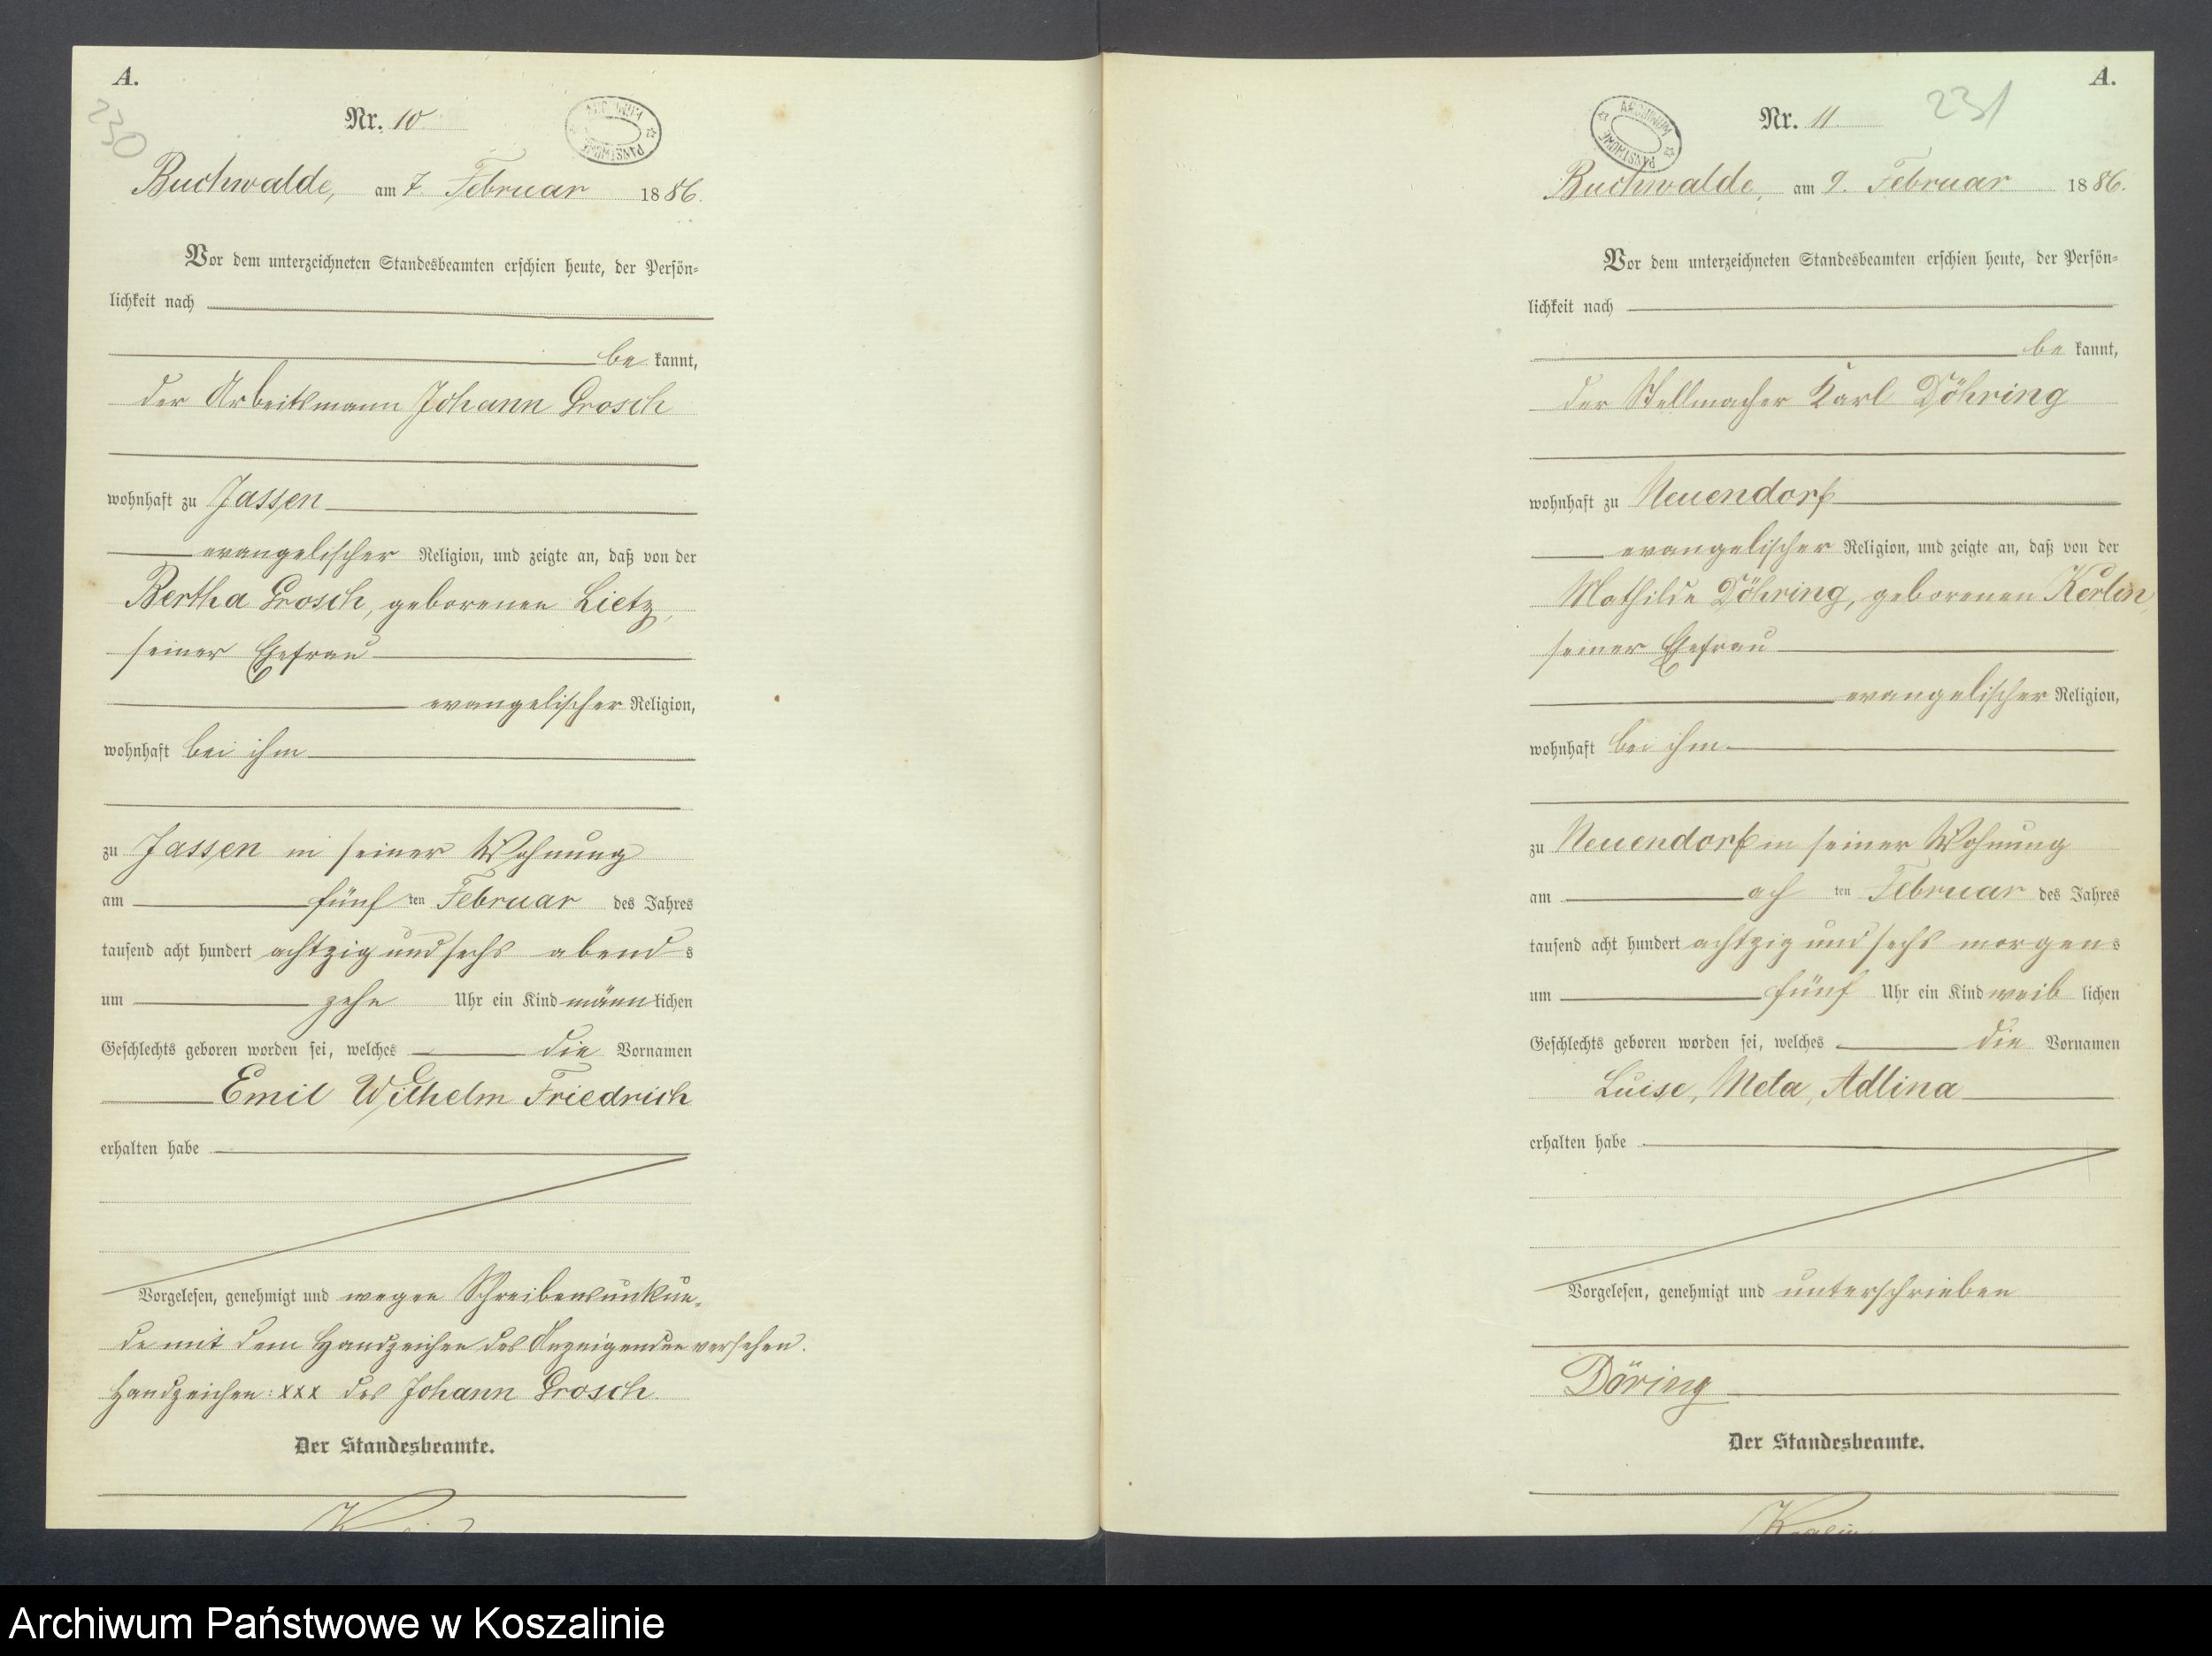 A.
230
Nr. 10
ARCHIWUM PAŃSTWOWE
Buchwalde, am 7. Februar 1886.
Vor dem unterzeichneten Standesbeamten erschien heute, der Persön-
lichkeit nach
be kannt,
der Arbeitsmann Johann Grosch
wohnhaft zu Jassen
evangelischer Religion, und zeigte an, daß von der
Bertha Grosch, geborenen Lietz,
seiner Ehefrau
evangelischer Religion,
wohnhaft bei ihm
zu Jassen in seiner Wohnung
am fünf ten Februar des Jahres
tausend acht hundert achtzig und sechs abend s
um zehn Uhr ein Kind männ lichen
Geschlechts geboren worden sei, welches die Vornamen
Emil Wilhelm Friedrich
erhalten habe
Vorgelesen, genehmigt und wegen Schreibensunkun-
de mit dem Handzeichen des Anzeigenden versehen.
Handzeichen: xxx des Johann Grosch.
Der Standesbeamte.
A.
231
Nr. 11
ARCHIWUM PAŃSTWOWE
Buchwalde, am 9. Februar 1886.
Vor dem unterzeichneten Standesbeamten erschien heute, der Persön-
lichkeit nach
be kannt,
der Stellmacher Karl Döhring
wohnhaft zu Neuendorf
evangelischer Religion, und zeigte an, daß von der
Mathilde Döhring, geborenen Kerlin,
seiner Ehefrau
evangelischer Religion,
wohnhaft bei ihm
zu Neuendorf in seiner Wohnung
am ach ten Februar des Jahres
tausend acht hundert achtzig und sechs morgen s
um fünf Uhr ein Kind weib lichen
Geschlechts geboren worden sei, welches die Vornamen
Luise, Meta, Adlina
erhalten habe
Vorgelesen, genehmigt und unterschrieben
Döring
Der Standesbeamte.
Archiwum Państwowe w Koszalinie